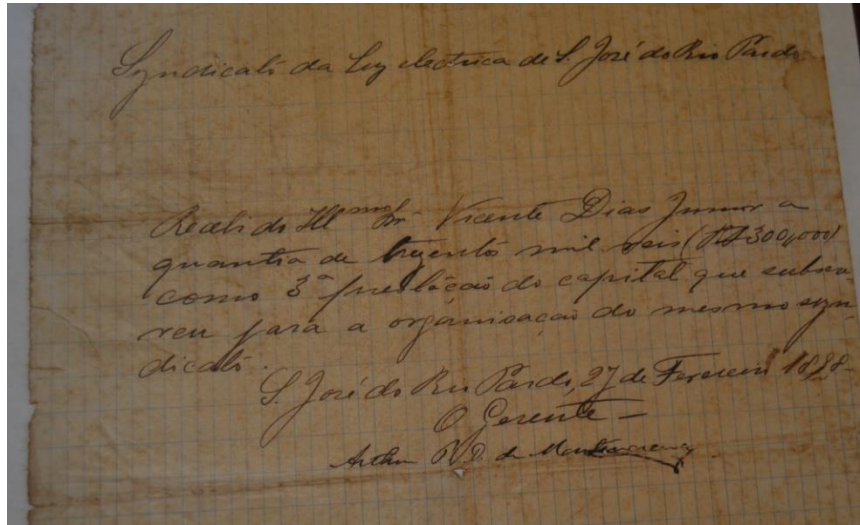 Syndicato da Luz electrica de S. José do Rio Pardo.
Recebi do Ill.mo Sr. Vicente Dias Junior a
quantia de trezentos mil reis (R$300,000)
como 3ª prestação do capital que subscre
veu para a organisação do mesmo syn
dicato.
S. José do Rio Pardo, 27 de Fevereiro 1898
O Gerente —
Arthur de